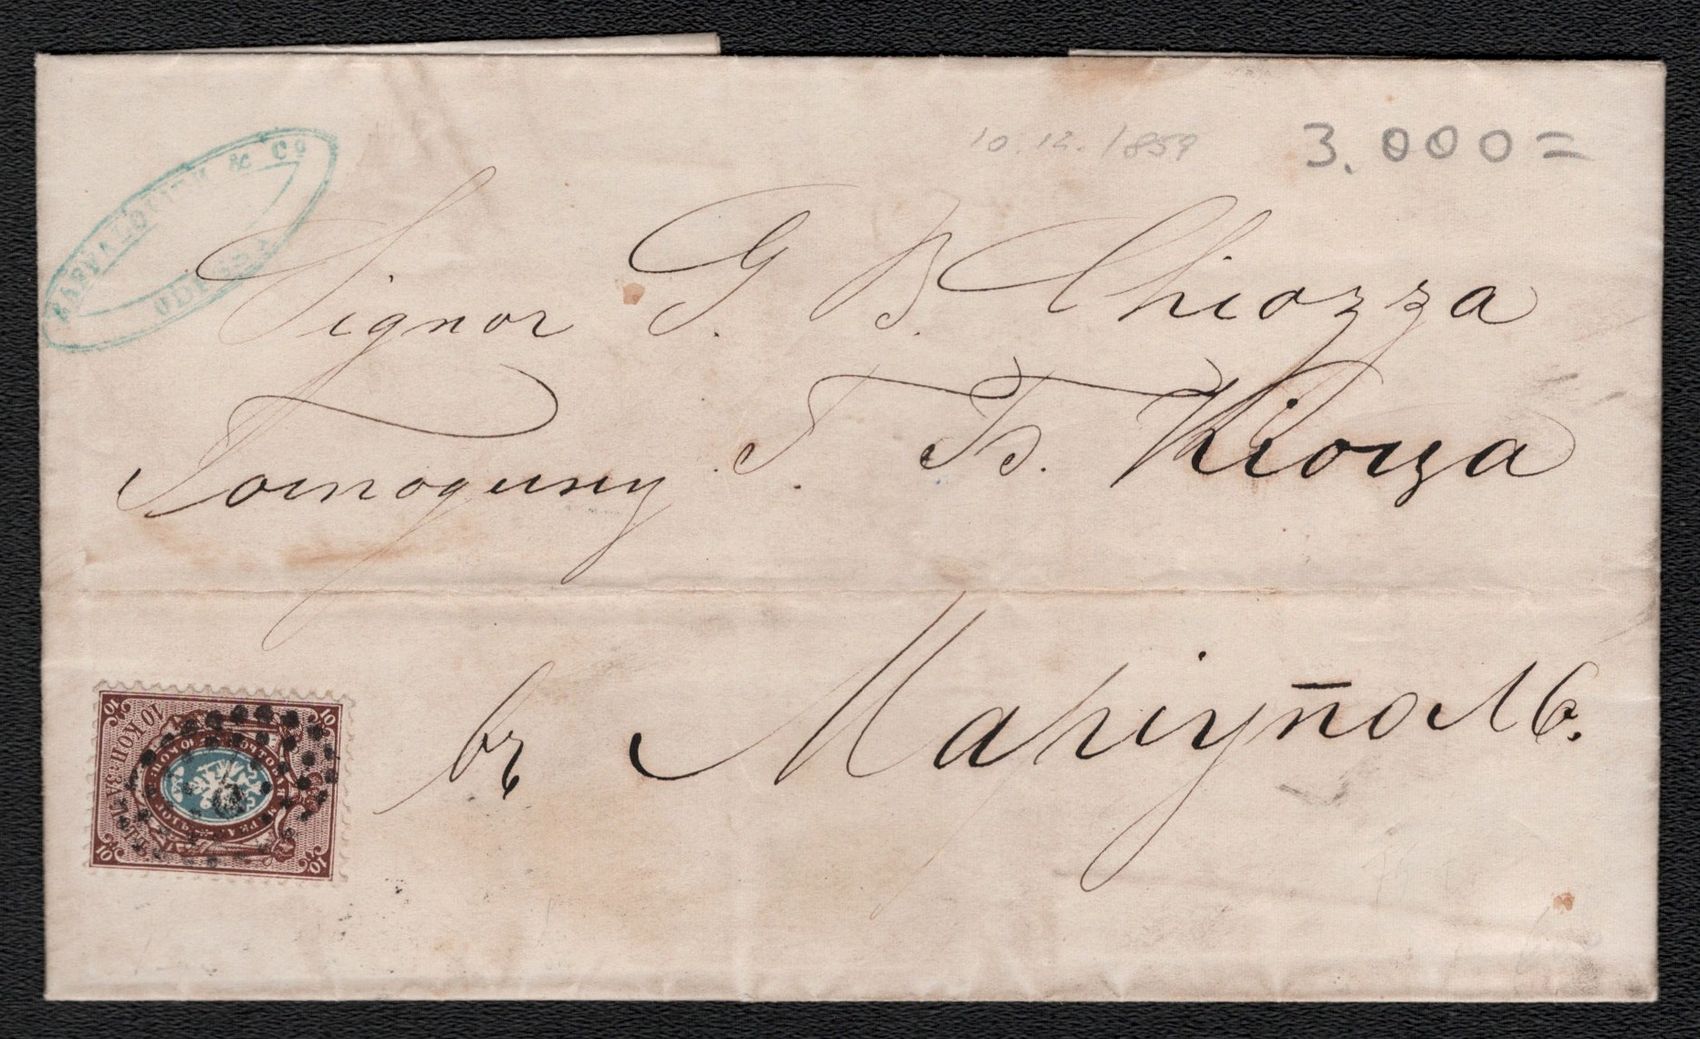 10.12.1859
3.000=
& Co
ODESSA
Signor G. B. Chiozza
Господину Г. Б. Кіоцца
въ Маріуполь.
10
10
10 КОП. ЗА ЛОТЪ
10
10